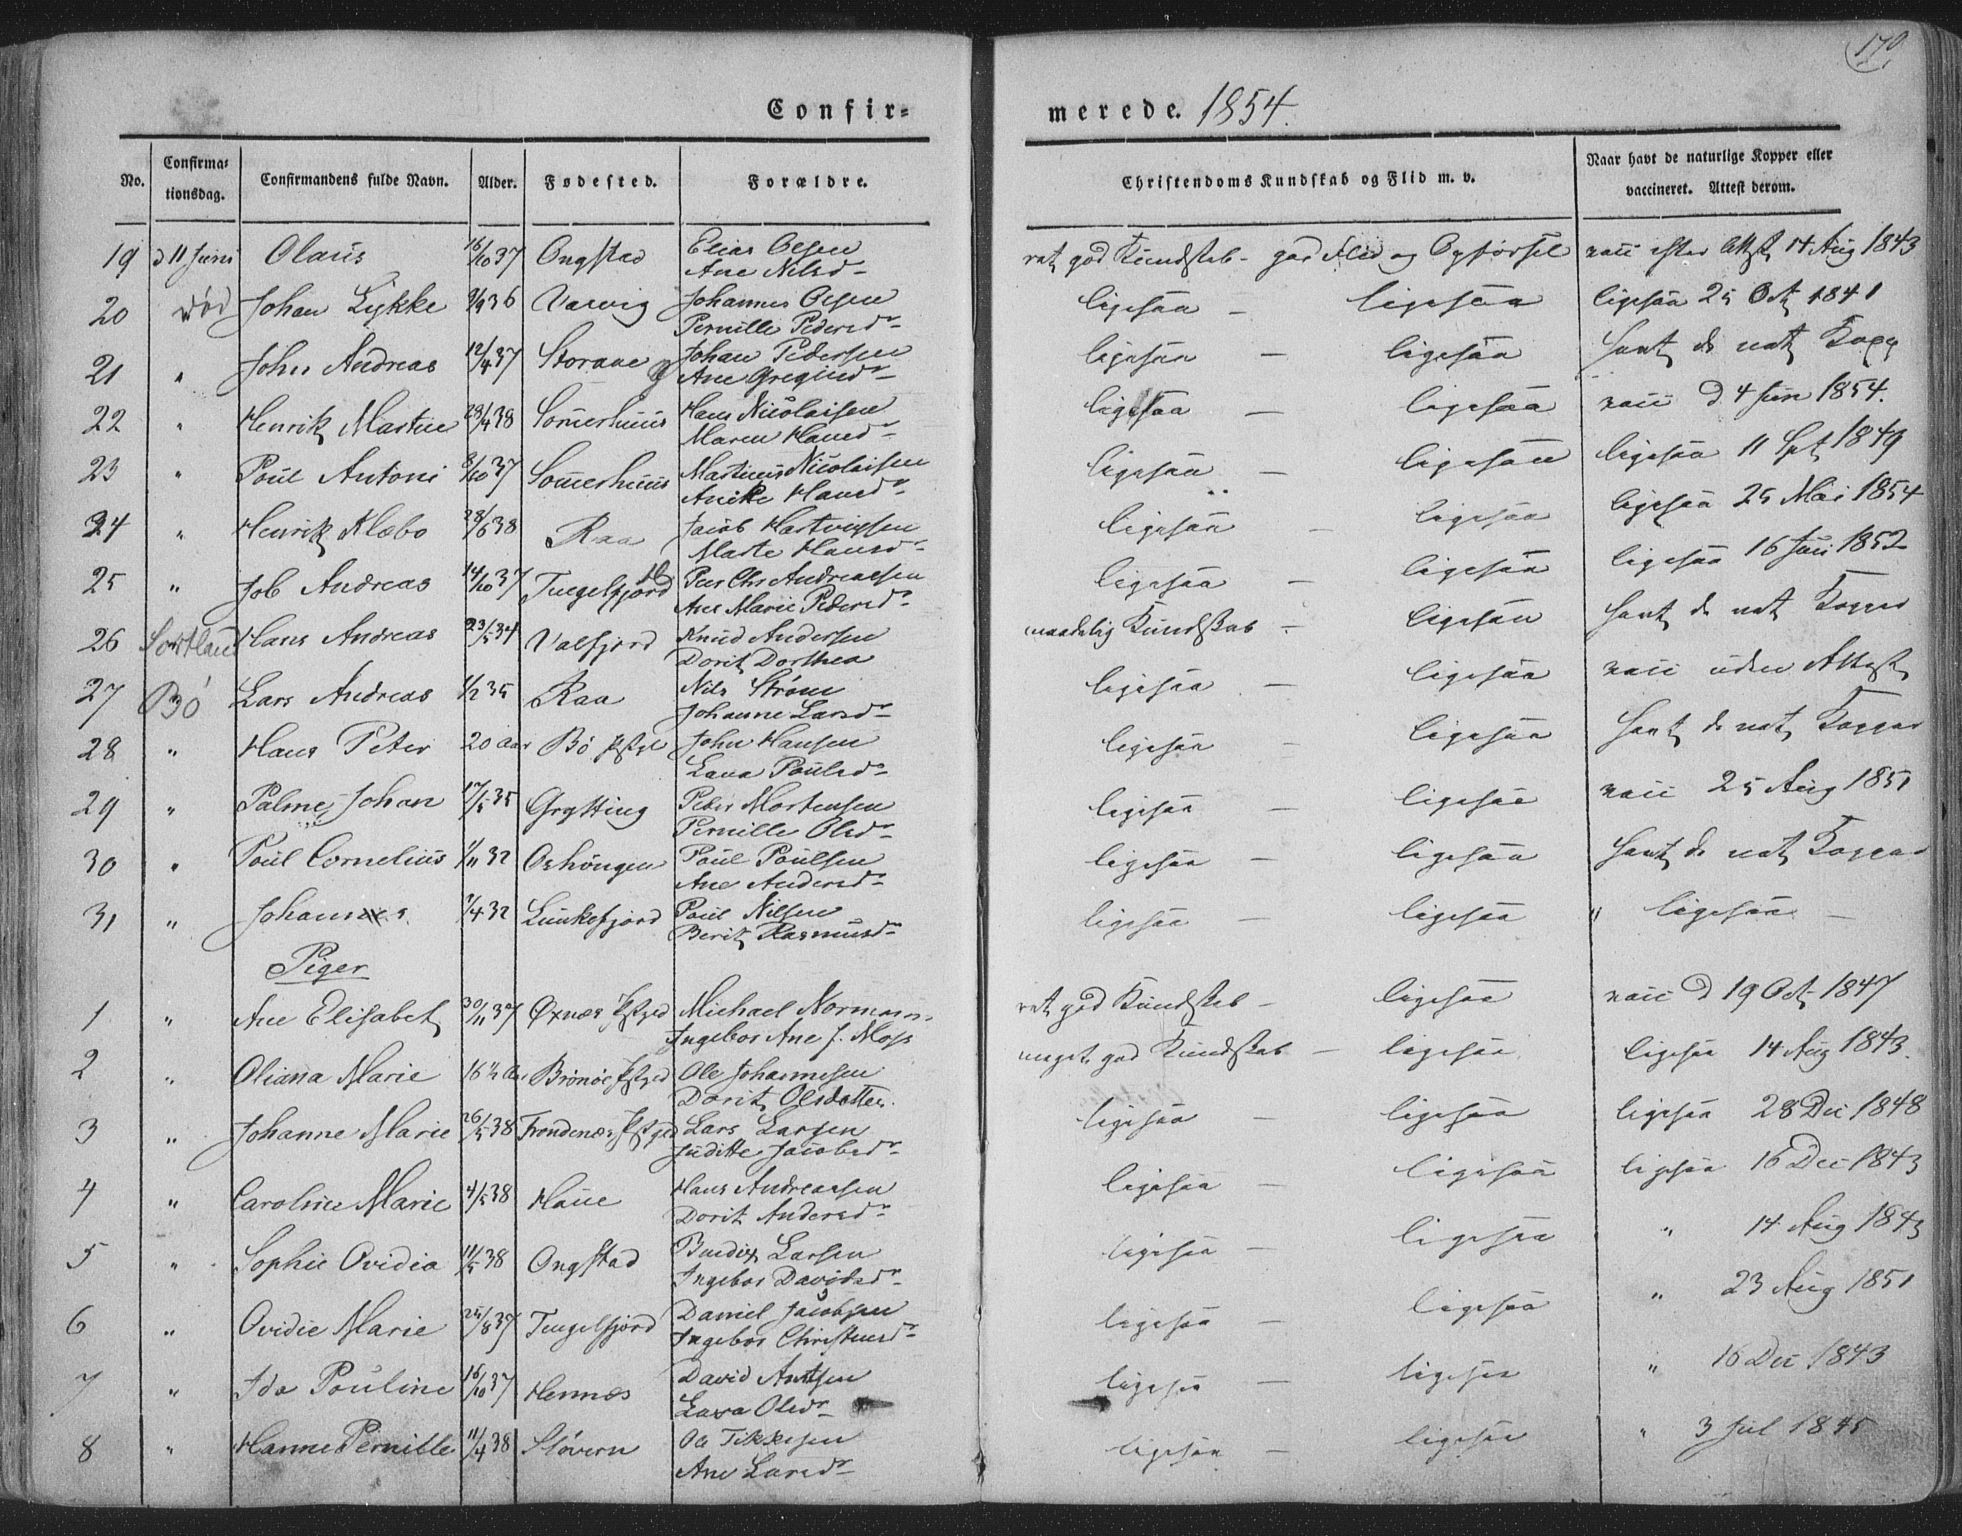 170
Confir-
merede. 1854.
No.
Confirma-
tionsdag.
Confirmandens fulde Navn.
Alder.
Fødested.
Forældre.
Christendoms Kundskab og Flid m. v.
Naar havt de naturlige Kopper eller
vaccineret. Attest derom.
19 d 11 Juni Olaüs 16/10 37 Ongstad Elias Olsen ret god Kündskab - god Flid og Opførsel vacc efter Attst 14 Aug 1843
Ane Nilsd-
20 Johan Lykke 9/9 36 Varvig Johannes Olsen ligesaa - ligesaa ligesaa 25 Oct 1841
Pernille Pedersdr
21 " John Andreas 12/4 37 Johan Pedersen ligesaa - ligesaa havt d nat Kopp
Ane
22 " Henrik Martin 29/4 38 Somerhuus Hans Nicolaisen ligesaa - ligesaa vacc d 4 Jun 1854.
Maren Hansdr
23 " Poül Antoni 8/10 37 Somerhuus Martinus Nicolaisen ligesaa - ligesaa ligesaa 11 Spt 1849
Hansdr
24 " Henrik Klæbo 28/6 38 Raa Jacob Hartvigsen ligesaa - ligesaa ligesaa 25 Mai 1854
Marte Hansdr
25 " Job Andreas 14/10 37 Tingelfjord Peer Chr Andreasen ligesaa - ligesaa ligesaa 16 Juli 1852
Ane Marie Pedersdr
26 Sortland Hans Andreas 23/5 34 Valfjord Knud Andersen maadelig Kündskab - ligesaa havt d nat Kopper
Dorit Dorthea
27 Bö Lars Andreas 1/2 35 Raa Nils Strøm ligesaa - ligesaa vacc uden Attest
Johanne Larsdr
28 " Hans Peter 20 Aar Bö Pstgl John Hansen ligesaa ligesaa havt d nat Kopper
Lava Poülsdr
29 " Palme Johan 17/5 35 Grytting Peder Mortensen ligesaa - ligesaa vacc 25 Aug 1851
Pernille Olsd-
30 " Poül Cornelius 1/11 32 Oshöngen Poül Poülsen ligesaa - ligesaa havt d nat Kopper
Ane Andersdr
31 " Johannes 7/4 32 Lünkefjord Poül Nilsen ligesaa - ligesaa " ligesaa -
Berit Rasmusdr
Piger
1 " Ane Elisabet 30/11 37 Øxnæs Pstgjed Michael Normann ret god Kündskab - ligesaa vacc d 19 Oct 1847
Ingebor Ane J. Moss
2 " Oliana Marie 16 1/2 Aar Brønöe Pstgjed Ole Johannesen meget god Kündskab - ligesaa ligesaa 14 Aug 1843.
Dorit Olsdatter
3 " Johanne Marie 26/5 38 Trondenæs Pstgjed Lars Larsen ligesaa - ligesaa ligesaa 28 Dec 1848
Jüditte Jacobsdr
4 " Caroline Marie 4/5 38 Haue Hans Andreasen ligesaa - ligesaa ligesaa 16 Dec 1843
Dorit Andersdr
5 " Sophie Ovidia 11/5 38 Ongstad Bendix Larsen ligesaa - ligesaa " 14 Aug 1843
Ingebor Davidsdr
6 " Ovidie Marie 25/8 37 Tingelfjord Daniel Jacobsen ligesaa - ligesaa " 23 Aug 1851
Ingebor Christensdr
7 " Ida Pouline 16/10 37 Hennæs David Antsen ligesaa - ligesaa " 16 Dec 1843
Lava Olsd-
8 " Hanne Pernille 11/4 38 Støvern Ole Tikkesen ligesaa - ligesaa " 3 Jul 1845
Ane Larsd-